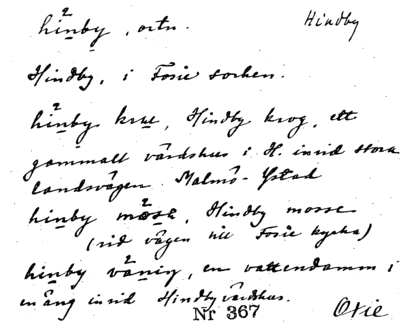 hinby, ortn. Hindby
Hindby, i Fosie socken.
hinby krue, Hindby krog, ett
gammalt värdshus i H. invid stora
landsvägen Malmö-Ystad
hinby mose, Hindby mosse
(vid vägen till Fosie kyrka)
hinby väning, en vattendamm i
en äng invid Hindby värdshus.
Nr 367 Oxie